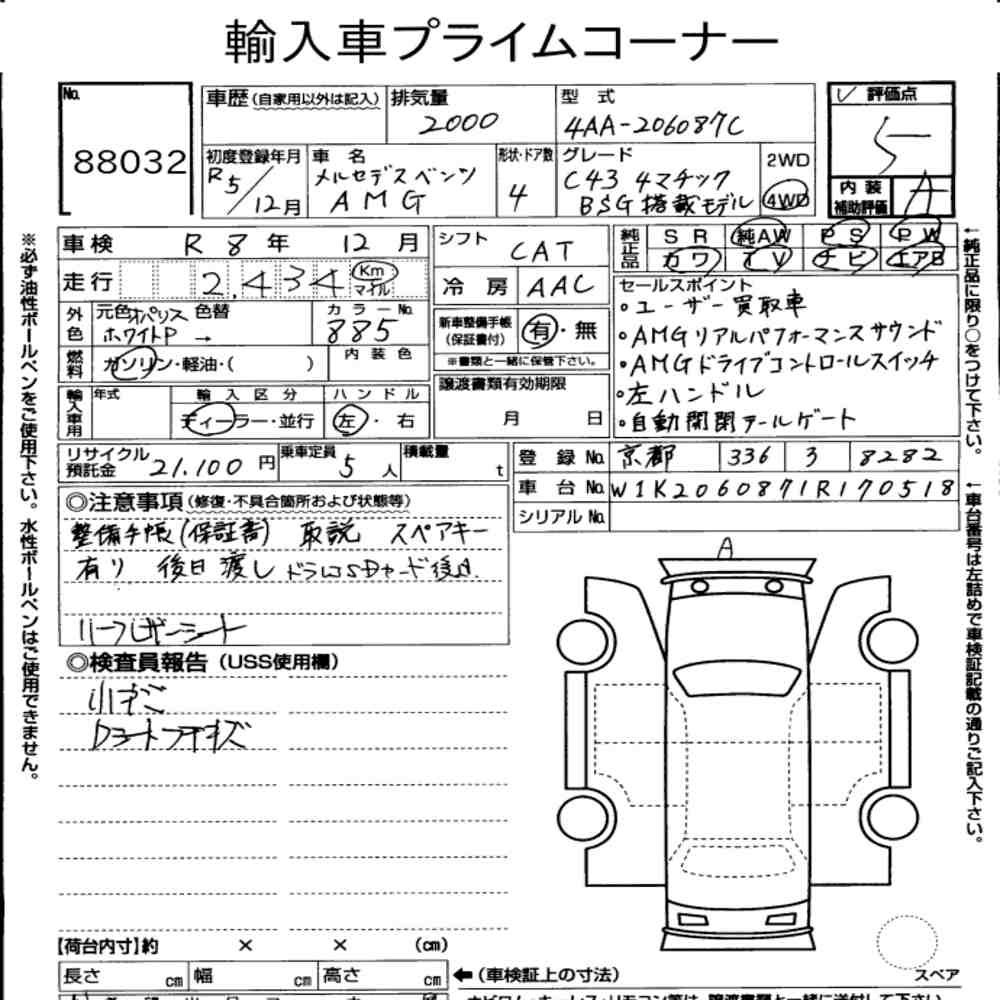 輸入車プライムコーナー
No. 88032
車歴(自家用以外は記入) 排気量 2000
型式 4AA-206087C
評価点 5
初度登録年月 R5/12月
車名 メルセデスベンツ AMG
形状・ドア数 4
グレード C43 4マチック BSG搭載モデル
2WD 4WD
内装補助評価 A
車検 R8年 12月
シフト CAT
純正品 SR 純AW PS PW
カワ TV ナビ エアB
走行 2,434 Km マイル
冷房 AAC
セールスポイント
・ユーザー買取車
・AMGリアルパフォーマンスサウンド
・AMGドライブコントロールスイッチ
・左ハンドル
・自動開閉テールゲート
外色 元色 オパリスホワイトP → 色替
カラーNo. 885
新車整備手帳(保証書付) 有・無
※書類と一緒に保管下さい。
燃料 ガソリン・軽油・( )
内装色
譲渡書類有効期限
月 日
輸入車用 年式 輸入区分 ハンドル
ディーラー・並行 左・右
リサイクル預託金 21,100円
乗車定員 5人
積載量 t
登録No. 京都 336 ま 8282
車台No. W1K2060871R170518
シリアルNo.
◎注意事項(修復・不具合箇所および状態等)
整備手帳(保証書) 取説 スペアキー
有り 後日渡し ドラレコSDカード後日.
ハーフレザーシート
◎検査員報告(USS使用欄)
小キズ
A
【荷台内寸】約 × × (cm)
長さ cm 幅 cm 高さ cm
←(車検証上の寸法)
スペア
※必ず油性ボールペンをご使用下さい。水性ボールペンはご使用できません。
←純正品に限り○をつけて下さい。
←車台番号は左詰めで車検証記載の通りご記入下さい。